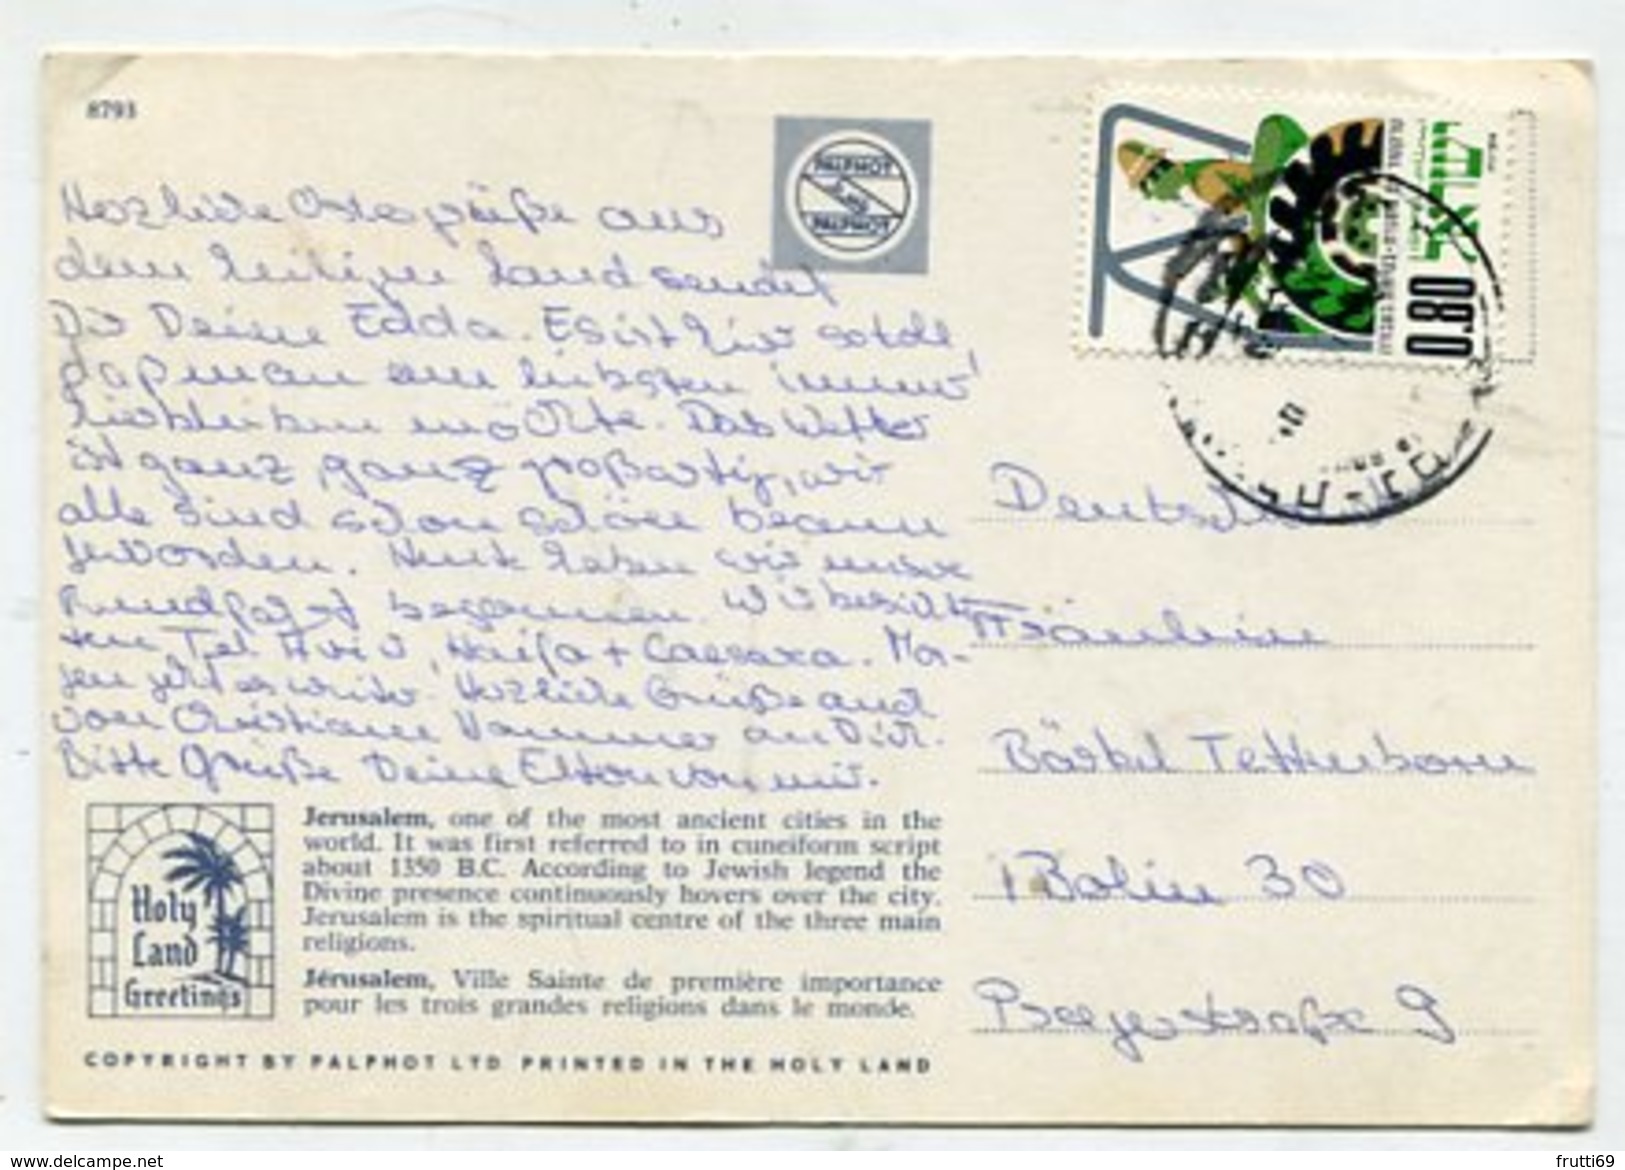 8793
PALPHOT
PALPHOT
Herzliche Ostergrüße aus
dem heiligen Land sendet
Dir Deine Edda. Es ist hier so toll,
daß man am liebsten immer
hierbleiben möchte. Das Wetter
ist ganz, ganz großartig, wir
alle sind schon schön braun
geworden. Heute haben wir unsere
Rundfahrt begonnen. Wir besich-
ten Tel Aviv, Haifa + Caesarea. Mor-
gen geht es weiter. Herzliche Grüße auch
von Christiane Hammer an Dich.
Bitte grüße Deine Eltern von mir.
ישראל
0.80
Deutschland
Fräulein
Bärbel Tetterborn
1 Berlin 30
Pregerstraße 9
Holy
Land
Greetings
Jerusalem, one of the most ancient cities in the
world. It was first referred to in cuneiform script
about 1350 B.C. According to Jewish legend the
Divine presence continuously hovers over the city.
Jerusalem is the spiritual centre of the three main
religions.
Jérusalem, Ville Sainte de première importance
pour les trois grandes religions dans le monde.
COPYRIGHT BY PALPHOT LTD PRINTED IN THE HOLY LAND
www.delcampe.net
frutti69